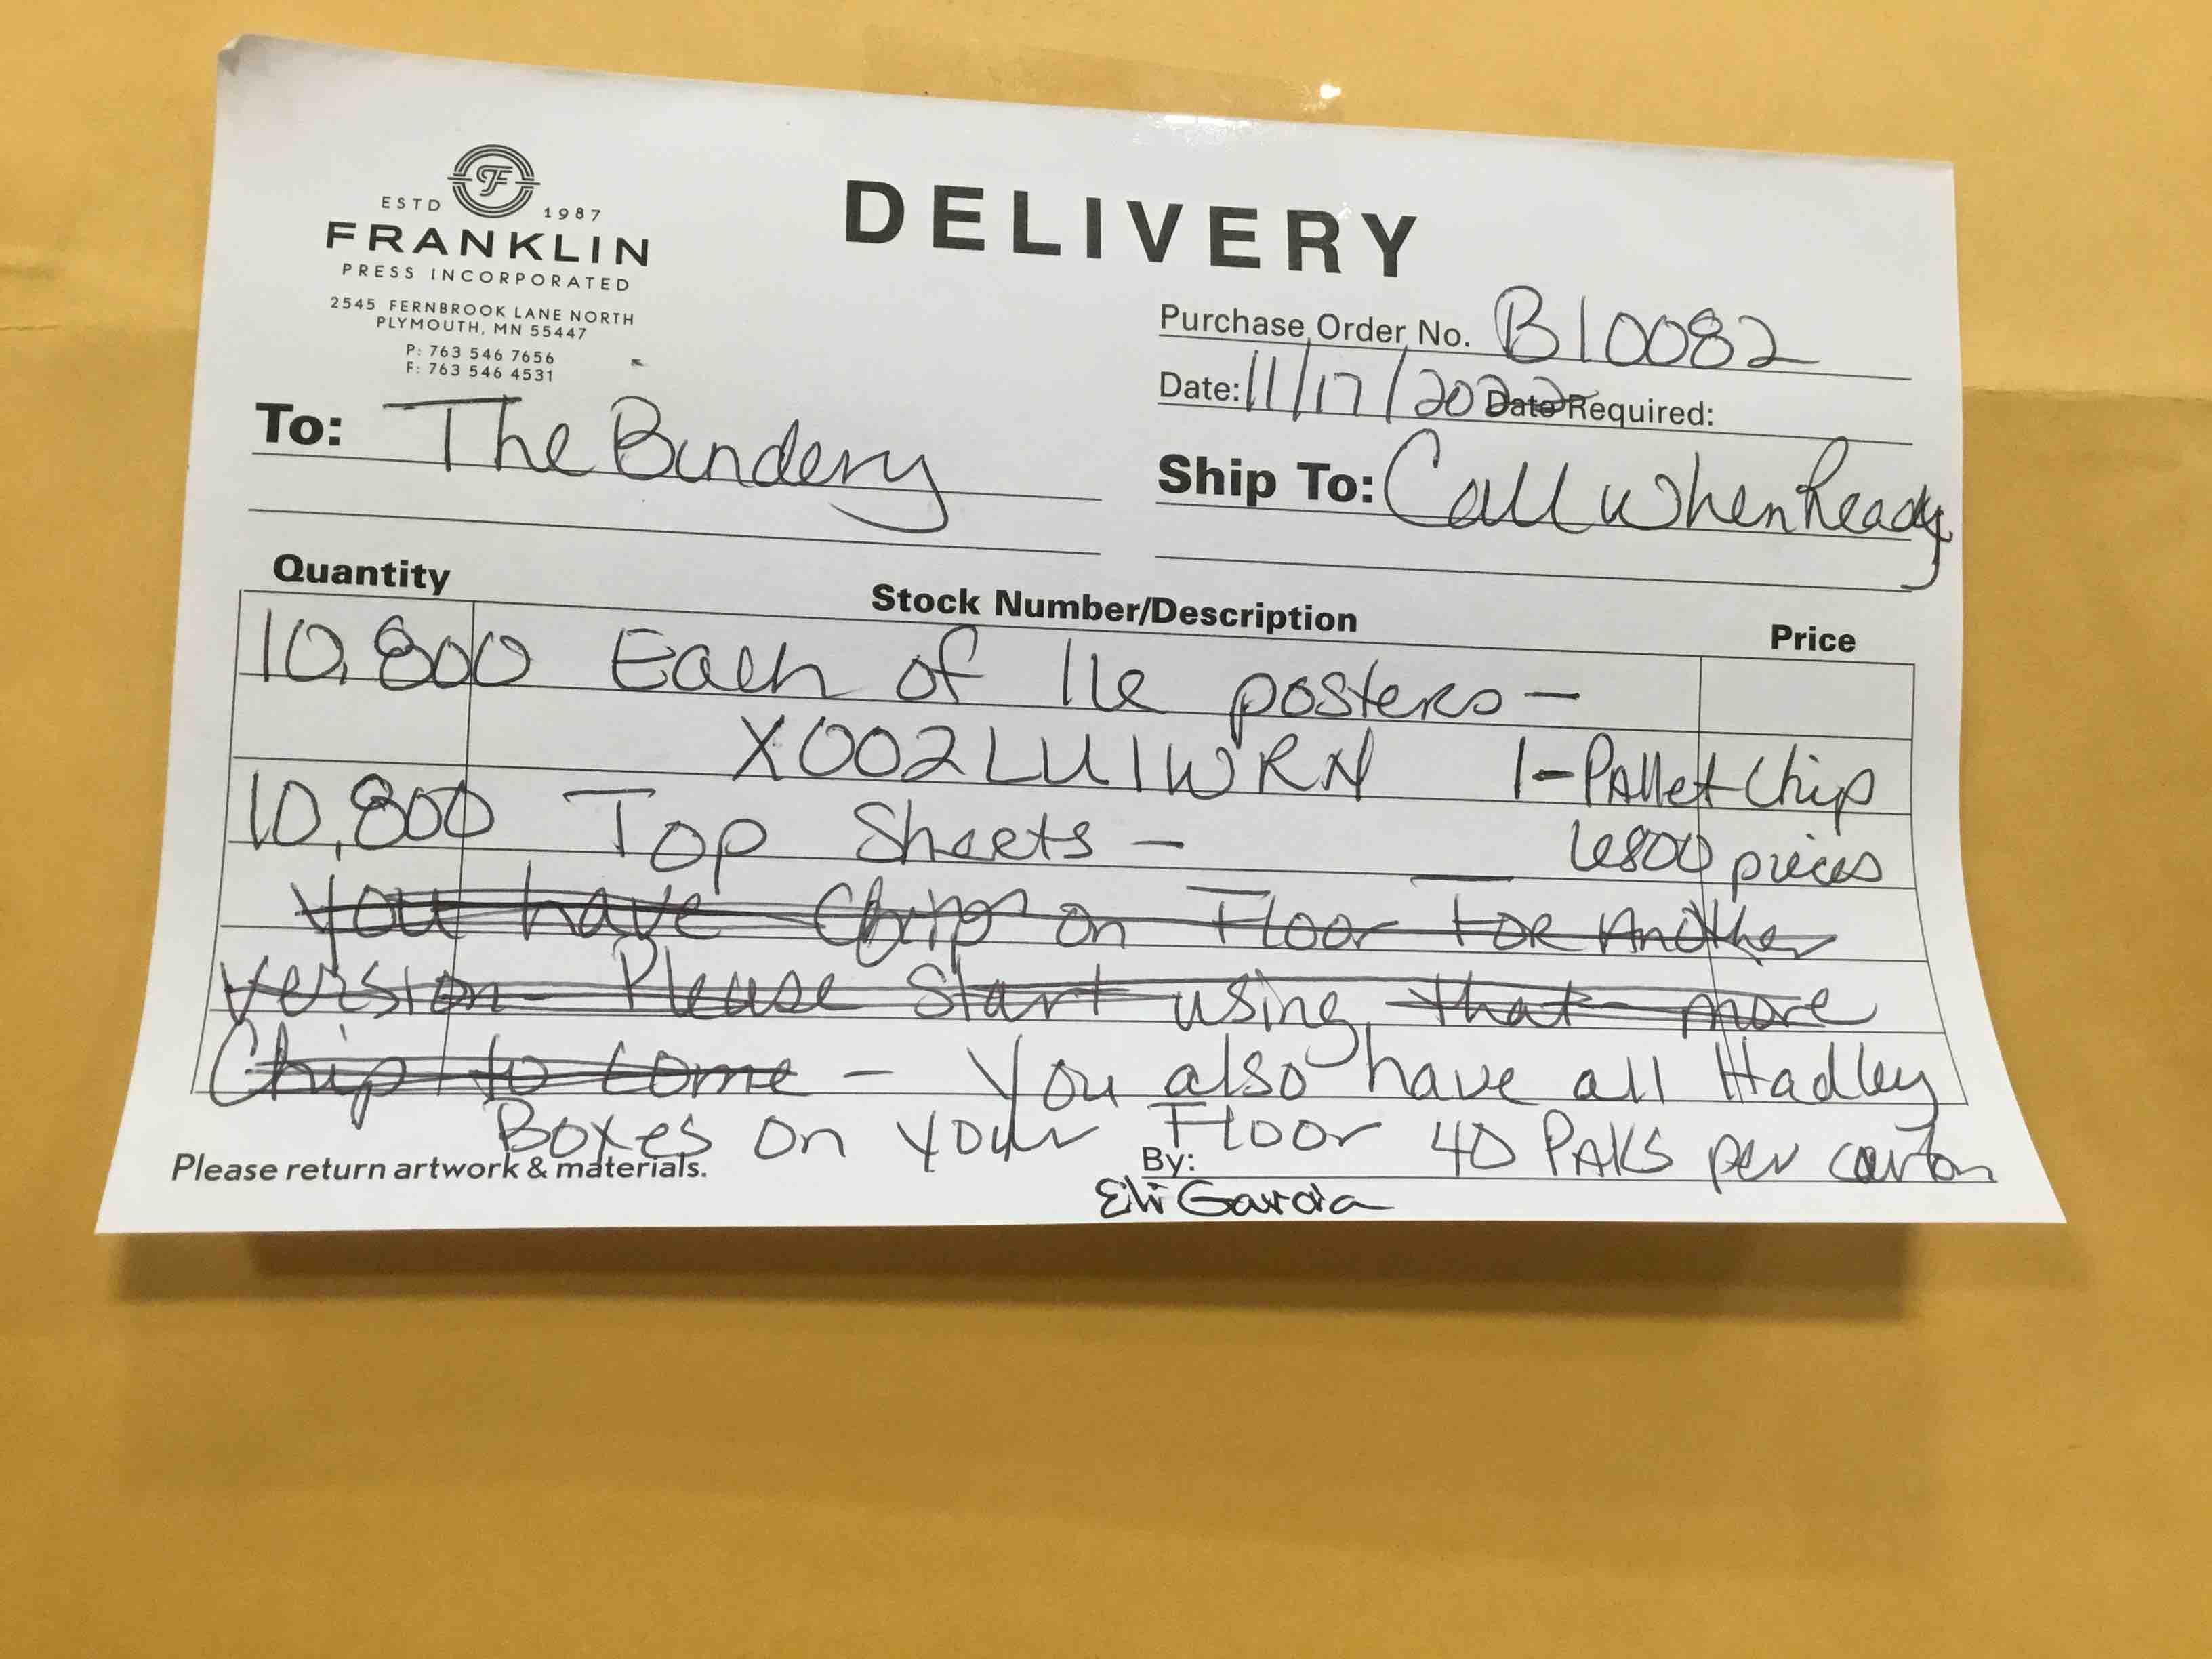 ESTD 1987
FRANKLIN
PRESS INCORPORATED
2545 FERNBROOK LANE NORTH
PLYMOUTH, MN 55447
P: 763 546 7656
F: 763 546 4531
DELIVERY
Purchase Order No. B10082
Date: 11/17/2022 Date Required:
To: The Bindery
Ship To: Call when Ready
Quantity Stock Number/Description Price
10,800 Each of 16 posters –
X002LU1WRN 1–PAllet Chip
10,800 Top Sheets – 6800 pieces
You have Chip on Floor For Another
version – Please start using that – more
Chip to come – You also have all Hadley
Boxes on your Floor 40 PAKS per carton
Please return artwork & materials. By:
Eli Garcia